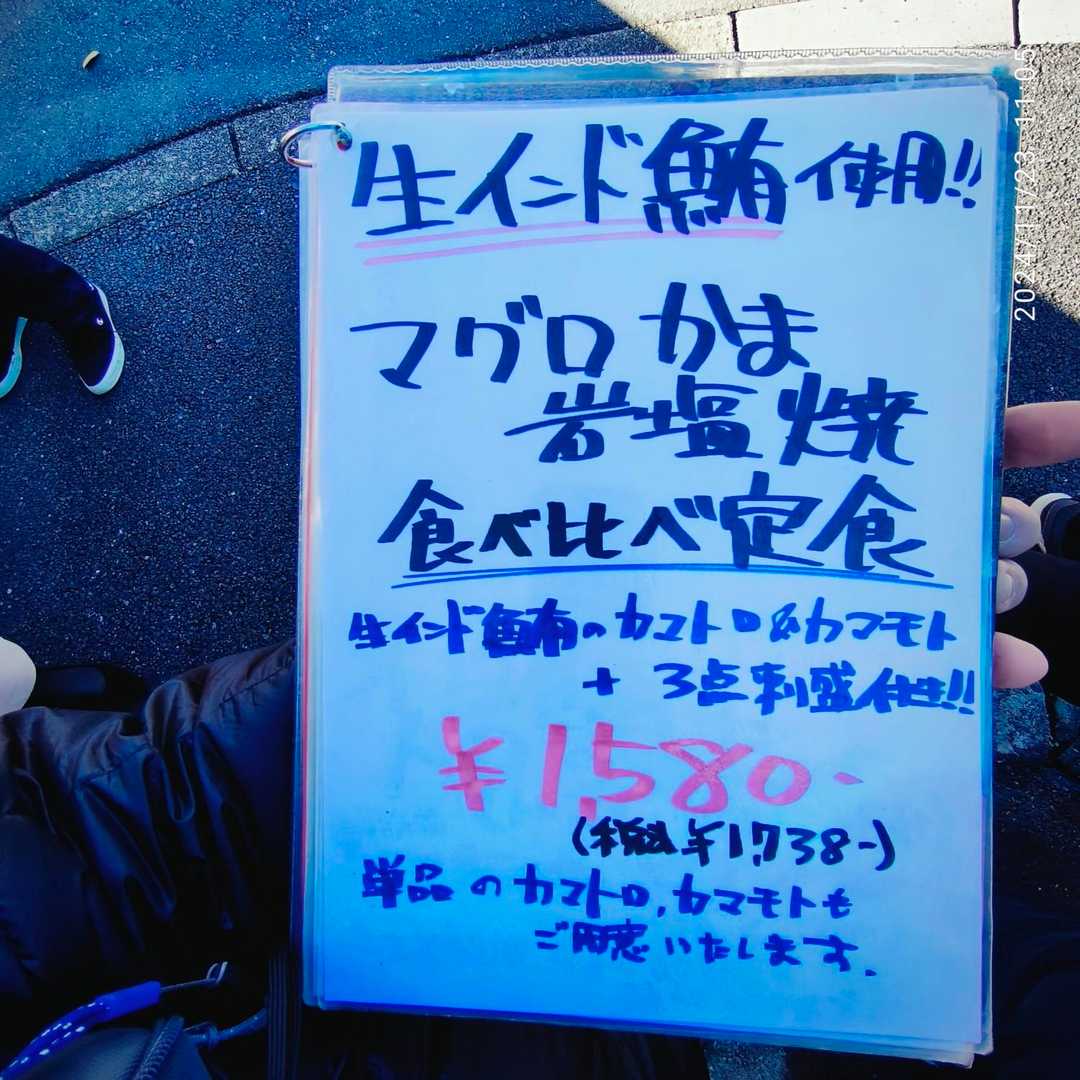 生インド鮪使用!!
マグロかま
岩塩焼
食べ比べ定食
生インド鮪のカマトロ&カマモト
+ 3点刺盛付き!!
¥1,580-
(税込¥1,738-)
単品のカマトロ、カマモトも
ご用意いたします。
2024/11/23 11:05